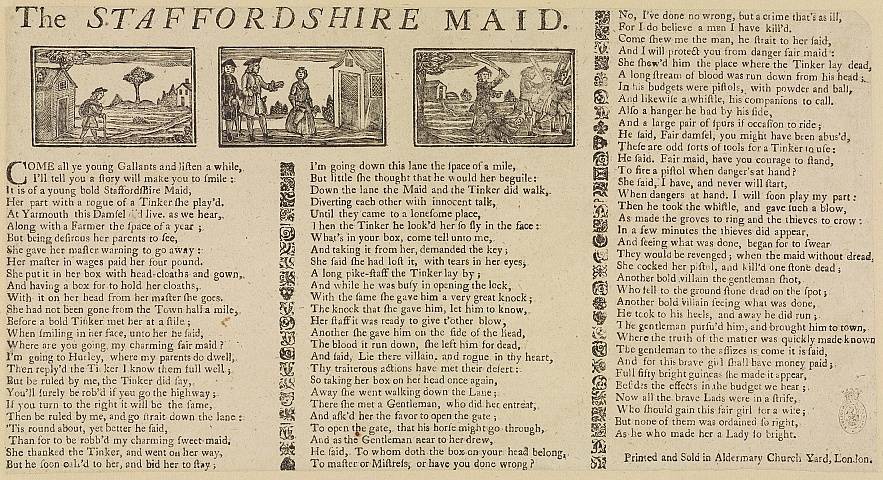 The STAFFORDSHIRE MAID.
COME all ye young Gallants and liſten a while,
I'll tell you a ſtory will make you to ſmile :
It is of a young bold Staffordſhire Maid,
Her part with a rogue of a Tinker ſhe play'd.
At Yarmouth this Damſel did live. as we hear,
Along with a Farmer the ſpace of a year ;
But being deſirous her parents to ſee,
She gave her maſter warning to go away :
Her maſter in wages paid her four pound.
She put it in her box with head-cloaths and gown,
And having a box for to hold her cloaths,
With it on her head from her maſter ſhe goes.
She had not been gone from the Town half a mile,
Before a bold Tinker met her at a ſtile ;
When ſmiling in her face, unto her he ſaid,
Where are you going, my charming fair maid ?
I'm going to Hurley, where my parents do dwell,
Then reply'd the Tinker I know them full well ;
But be ruled by me, the Tinker did ſay,
You'll ſurely be rob'd if you go the highway ;
If you turn to the right it will be the ſame,
Then be ruled by me, and go ſtrait down the lane :
'Tis round about, yet better he ſaid,
Than for to be robb'd my charming ſweet maid,
She thanked the Tinker, and went on her way,
But he ſoon call'd to her, and bid her to ſtay ;
I'm going down this lane the ſpace of a mile,
But little ſhe thought that he would her beguile :
Down the lane the Maid and the Tinker did walk,
Diverting each other with innocent talk,
Until they came to a loneſome place,
Then the Tinker he look'd her ſo ſly in the face :
What's in your box, come tell unto me,
And taking it from her, demanded the key ;
She ſaid ſhe had loſt it, with tears in her eyes,
A long pike-ſtaff the Tinker lay by ;
And while he was buſy in opening the lock,
With the ſame ſhe gave him a very great knock ;
The knock that ſhe gave him, let him to know,
Her ſtaff it was ready to give t'other blow,
Another ſhe gave him on the ſide of the head,
The blood it run down, ſhe left him for dead,
And ſaid, Lie there villain, and rogue in thy heart,
Thy traiterous actions have met their deſert :
So taking her box on her head once again,
Away ſhe went walking down the Lane ;
There ſhe met a Gentleman, who did her entreat,
And aſk'd her the favor to open the gate ;
To open the gate, that his horſe might go through,
And as the Gentleman near to her drew,
He ſaid, To whom doth the box on your head belong,
To maſter or Miſtreſs, or have you done wrong ?
No, I've done no wrong, but a crime that's as ill,
For I do believe a man I have kill'd.
Come ſhew me the man, he ſtrait to her ſaid,
And I will protect you from danger fair maid :
She ſhew'd him the place where the Tinker lay dead,
A long ſtream of blood was run down from his head ;
In his budgets were piſtols, with powder and ball,
And likewiſe a whiſtle, his companions to call.
Alſo a hanger he had by his ſide,
And a large pair of ſpurs if occaſion to ride ;
He ſaid, Fair damſel, you might have been abus'd,
Theſe are odd ſorts of tools for a Tinker to uſe :
He ſaid. Fair maid, have you courage to ſtand,
To fire a piſtol when danger's at hand ?
She ſaid, I have, and never will ſtart,
When dangers at hand. I will ſoon play my part :
Then he took the whiſtle, and gave ſuch a blow,
As made the groves to ring and the thieves to crow :
In a few minutes the thieves did appear,
And ſeeing what was done, began for to ſwear
They would be revenged ; when the maid without dread,
She cocked her piſtol, and kill'd one ſtone dead ;
Another bold villain the gentleman ſhot,
Who fell to the ground ſtone dead on the ſpot ;
Another bold villain ſeeing what was done,
He took to his heels, and away he did run ;
The gentleman purſu'd him, and brought him to town,
Where the truth of the matter was quickly made known
The gentleman to the aſſizes is come it is ſaid,
And for this brave girl ſhall have money paid ;
Full fifty bright guineas ſhe made it appear,
Beſides the effects in the budget we hear ;
Now all the brave Lads were in a ſtrife,
Who ſhould gain this fair girl for a wife ;
But none of them was ordained ſo right,
As he who made her a Lady ſo bright.
Printed and Sold in Aldermary Church Yard, London.